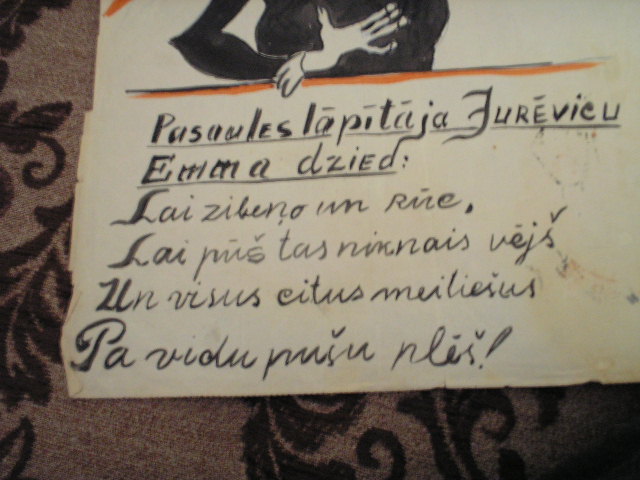 Pasaules lāpītāja Jurēvicu
Emma dzied:
Lai zibeņo un rūc,
Lai pūš tas niknais vējš
Un visus citus meitiešus
Pa vidu pušu plēš!